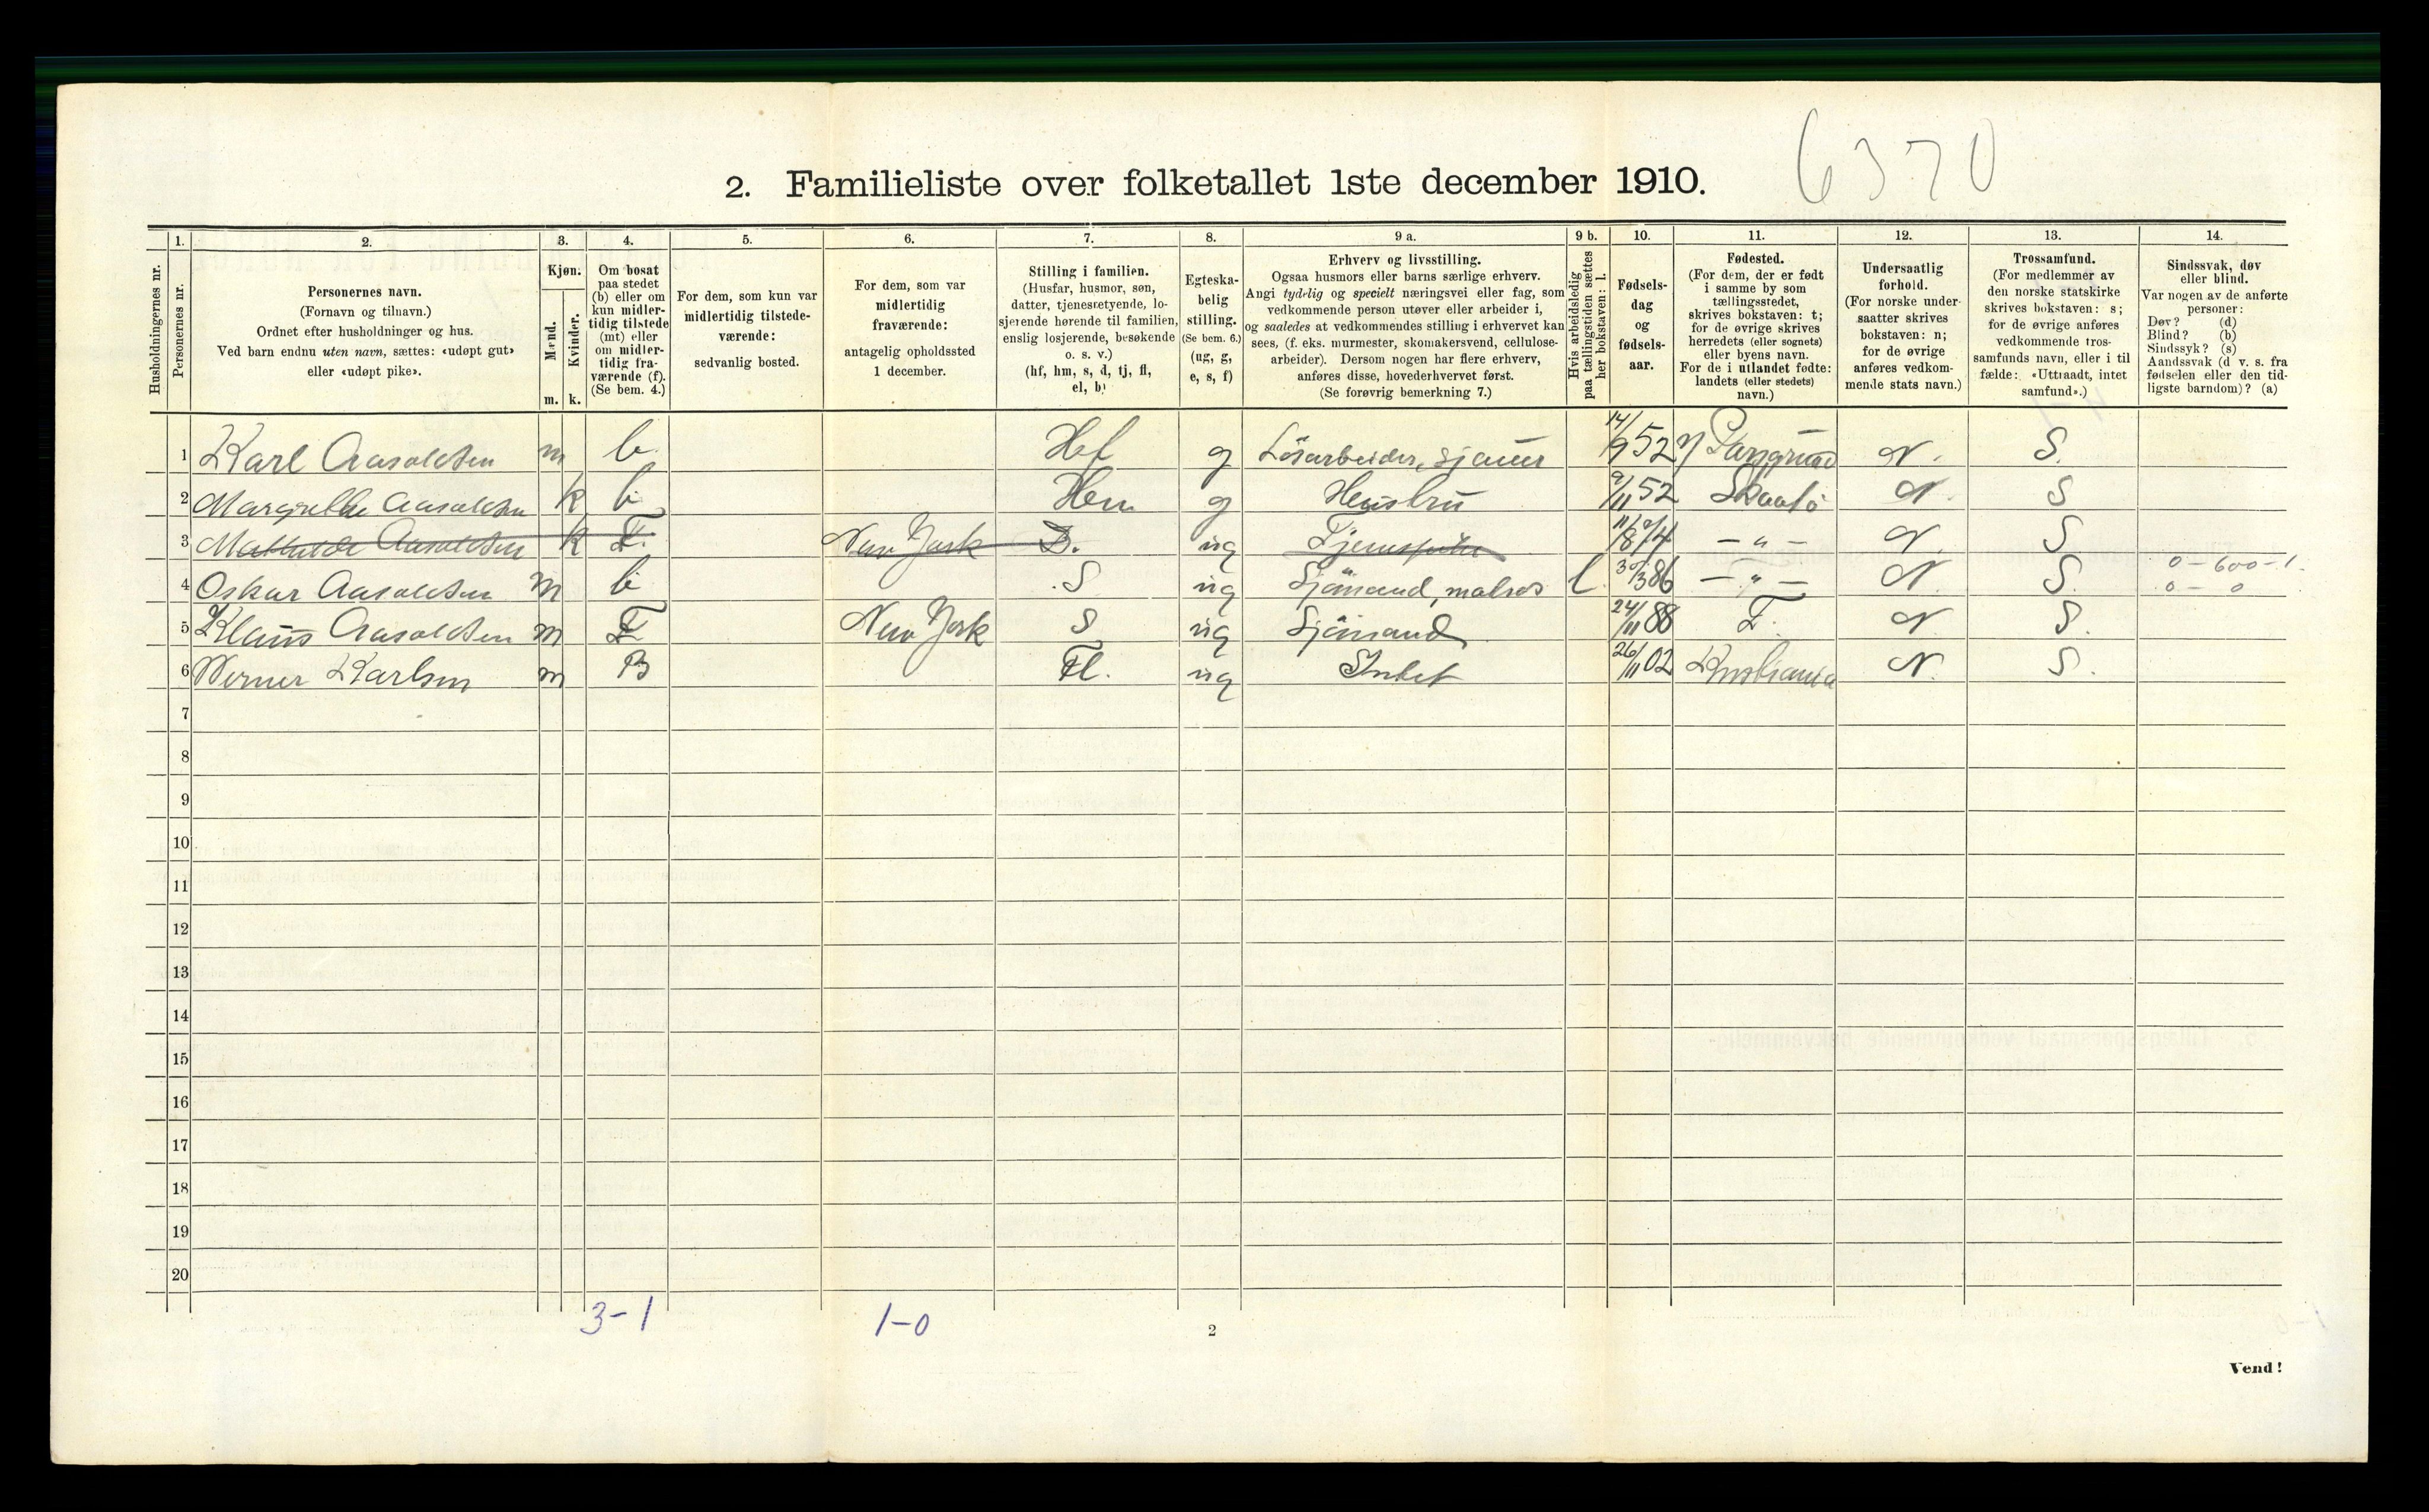 6370
2. Familieliste over folketallet 1ste december 1910.
1. 2. 3. 4. 5. 6. 7. 8. 9 a. 9 b. 10. 11. 12. 13. 14.
Husholdningernes nr.
Personernes nr.
Personernes navn.
(Fornavn og tilnavn.)
Ordnet efter husholdninger og hus.
Ved barn endnu uten navn, sættes: «udøpt gut»
eller «udøpt pike».
Kjøn.
Mænd.
Kvinder.
m. k.
Om bosat
paa stedet
(b) eller om
kun midler-
tidig tilstede
(mt) eller
om midler-
tidig fra-
værende (f).
(Se bem. 4.)
For dem, som kun var
midlertidig tilstede-
værende:
sedvanlig bosted.
For dem, som var
midlertidig
fraværende:
antagelig opholdssted
1 december.
Stilling i familien.
(Husfar, husmor, søn,
datter, tjenestetyende, lo-
sjerende hørende til familien,
enslig losjerende, besøkende
o. s. v.)
(hf, hm, s, d, tj, fl,
el, b)
Egteska-
belig
stilling.
(Se bem. 6.)
(ug, g,
e, s, f)
Erhverv og livsstilling.
Ogsaa husmors eller barns særlige erhverv.
Angi tydelig og specielt næringsvei eller fag, som
vedkommende person utøver eller arbeider i,
og saaledes at vedkommendes stilling i erhvervet kan
sees, (f. eks. murmester, skomakersvend, cellulose-
arbeider). Dersom nogen har flere erhverv,
anføres disse, hovederhvervet først.
(Se forøvrig bemerkning 7.)
Hvis arbeidsledig
paa tællingstiden sættes
her bokstaven: l.
Fødsels-
dag
og
fødsels-
aar.
Fødested.
(For dem, der er født
i samme by som
tællingsstedet,
skrives bokstaven: t;
for de øvrige skrives
herredets (eller sognets)
eller byens navn.
For de i utlandet fødte:
landets (eller stedets)
navn.)
Undersaatlig
forhold.
(For norske under-
saatter skrives
bokstaven: n;
for de øvrige
anføres vedkom-
mende stats navn.)
Trossamfund.
(For medlemmer av
den norske statskirke
skrives bokstaven: s;
for de øvrige anføres
vedkommende tros-
samfunds navn, eller i til
fælde: «Uttraadt, intet
samfund».)
Sindssvak, døv
eller blind.
Var nogen av de anførte
personer:
Døv? (d)
Blind? (b)
Sindssyk? (s)
Aandssvak (d v. s. fra
fødselen eller den tid-
ligste barndom)? (a)
1 Karl Aasoldsen m b. Hf g Løsarbeider, sjauer 14/9 52 Porsgrund N. S.
2 Aasoldsen k b Hm g Hustru 9/11 52 Skaatö N. S
3 Mathilde Aasoldsen k F. New York D. ug 11/8 74 — „ — N. S
4 Oskar Aasoldsen m b S ug Sjömand, matros l. 30/3 86 — „ — N S. 0 - 600 - 1.
0 - 0
5 Klaus Aasoldsen m F New York S ug Sjömand 24/11 88 T. N S.
6 Werner Karlsen m B Fl. ug Intet 26/11 02 Kristiania N. S.
7
8
9
10
11
12
13
14
15
16
17
18
19
20
3-1 1-0
2
Vend!